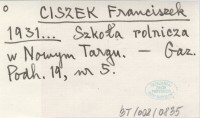 CISZEK Franciszek
1931... Szkoła rolnicza
w Nowym Targu. — Gaz.
Podh. 19, nr 5.
BT/001/0835